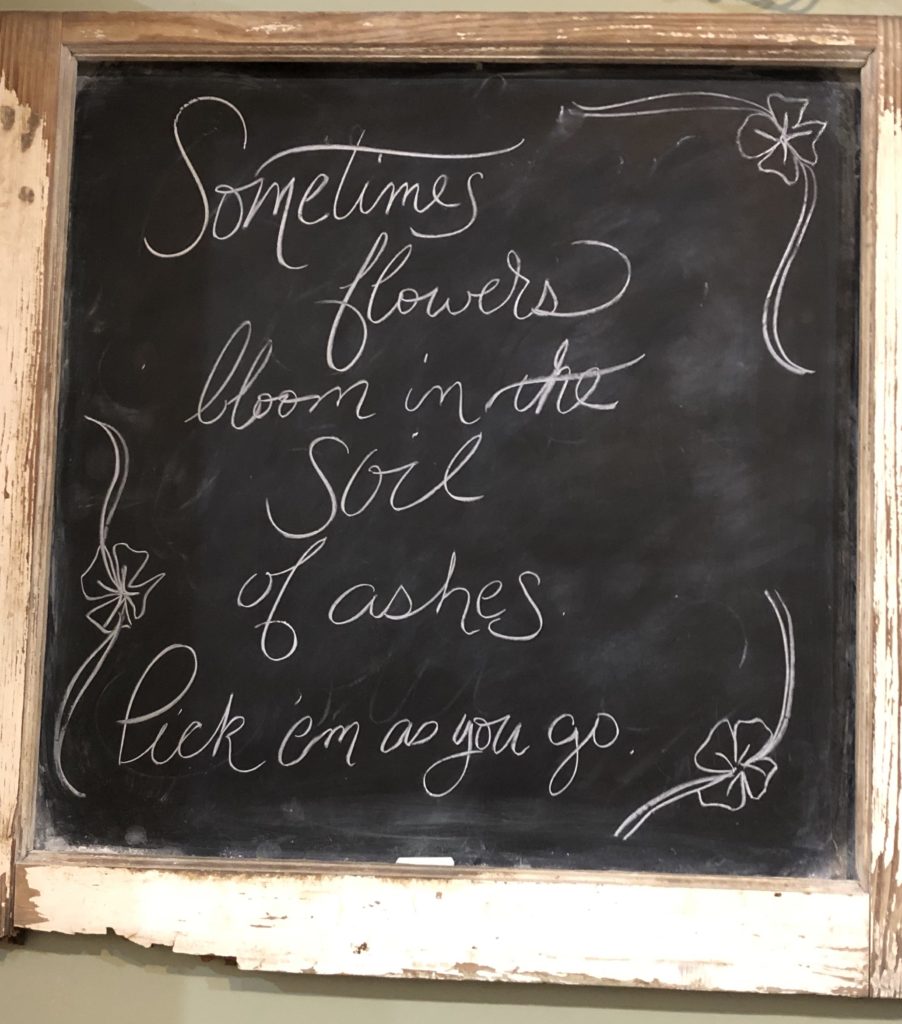 Sometimes
flowers
bloom in the
soil
of ashes.
Pick 'em as you go.